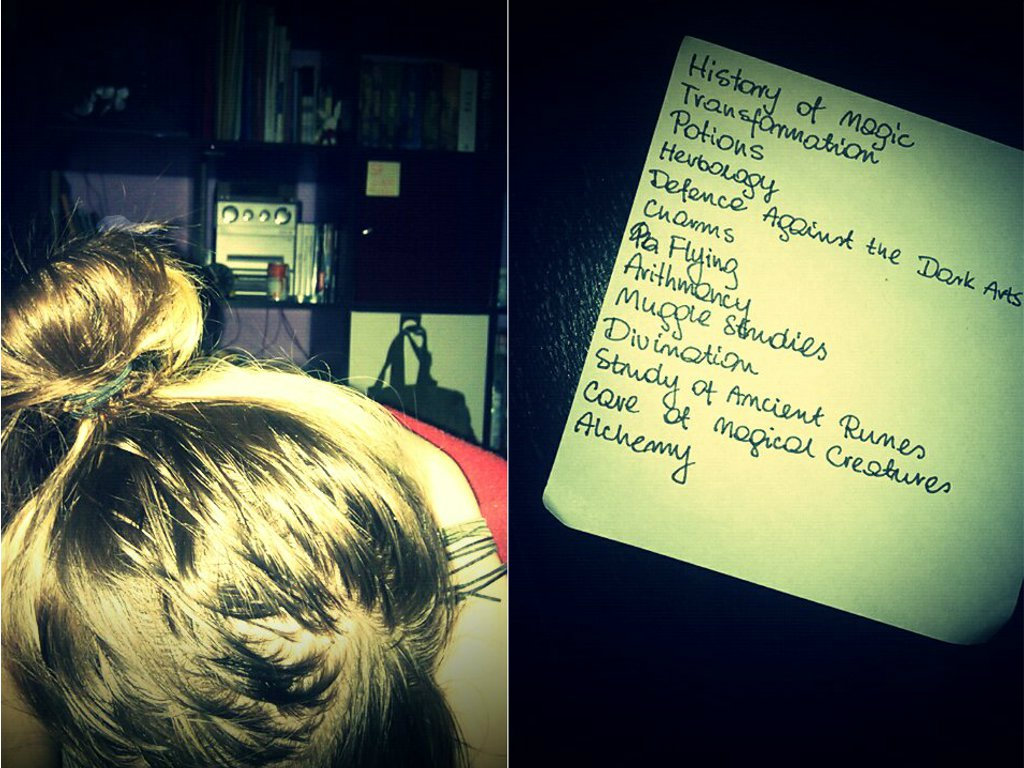 History of Magic
Transformation
Potions
Herbology
Defence Against the Dark Arts
Charms
Flying
Arithmancy
Muggle Studies
Divination
Study of Ancient Runes
Care of Magical Creatures
Alchemy